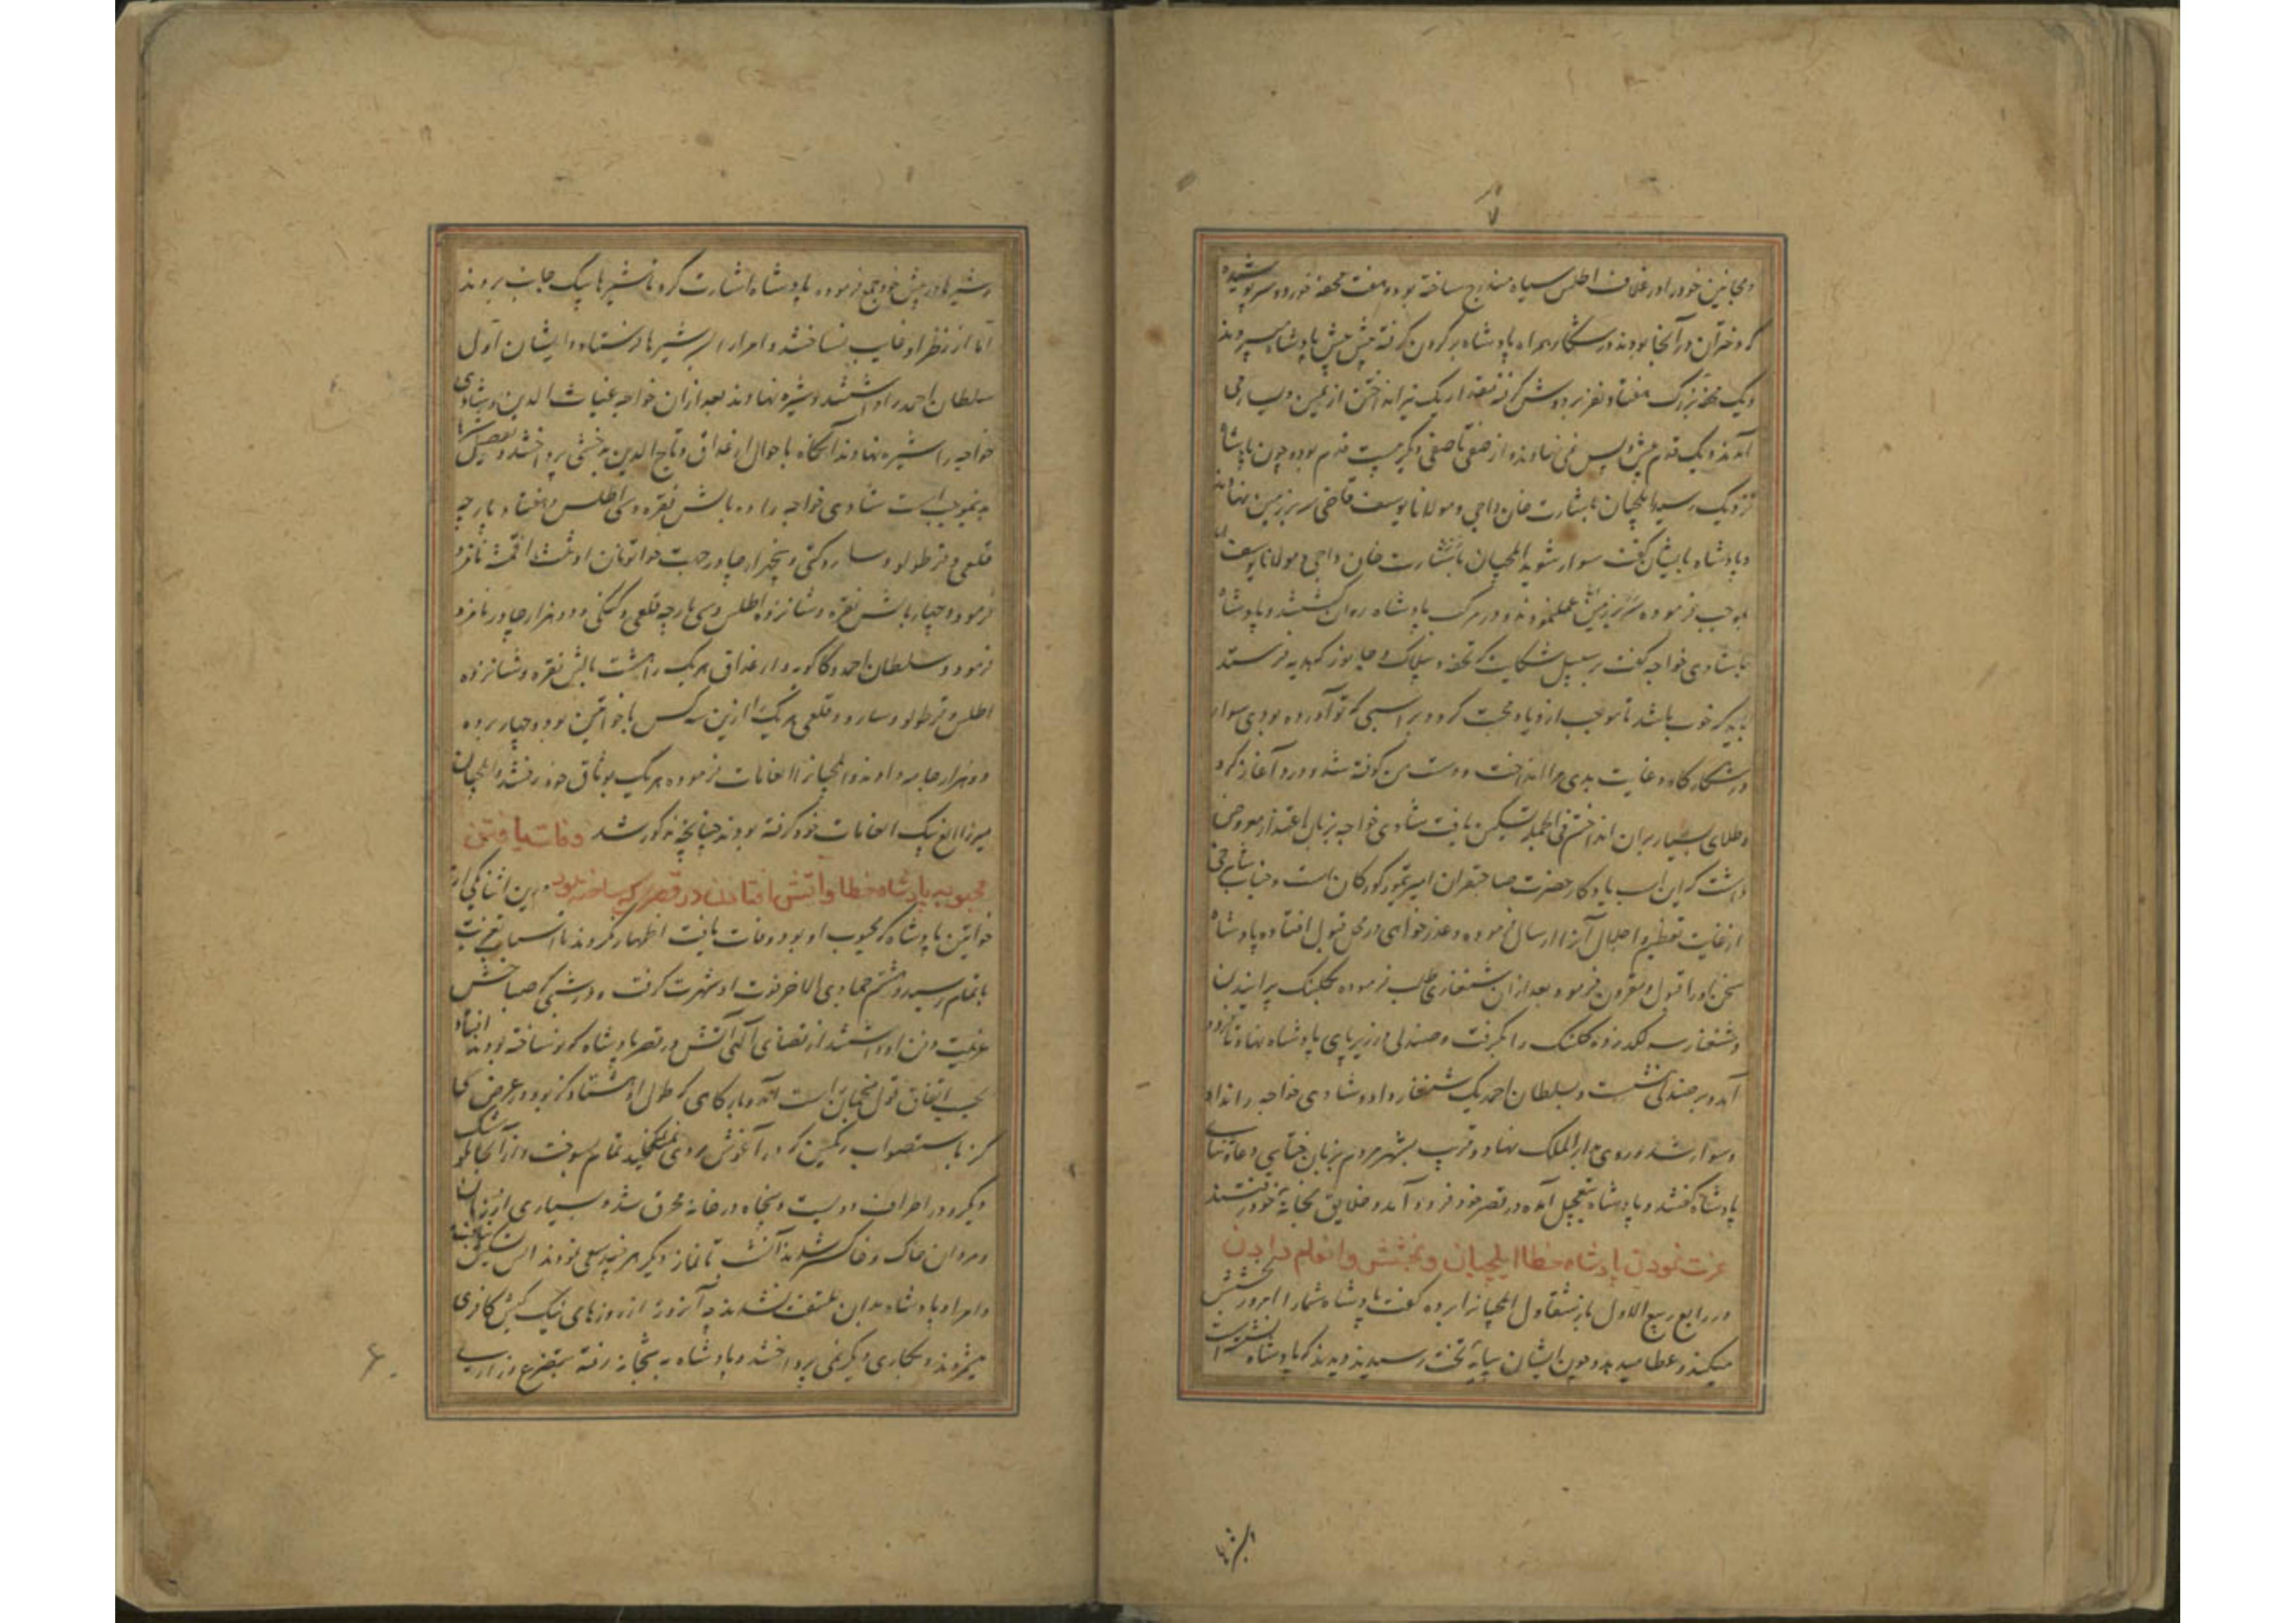 و مجانین خود را در غلاف اطلس سیاه مندرج ساخته بود و هفت محفه خورد و سرپوشیده
که دختران در آنجا بودند در شکار همراه پادشاه بر گردن گرفته پیش پیش پادشاه میبردند
و یک محفه بزرگ هفتاد نفر بر دوش گرفته مقدار یک تیر انداختن از یمین و یسار می
آمدند و یک قدم پیش و پس نمی نهادند و از صفی تا صفی دیگر بیست قدم بود و چون پادشاه
نزدیک رسید ایلچیان باشارت خان داجی و مولانا یوسف قاضی سر بر زمین نهادند
و پادشاه بایشان گفت سوار شوید ایلچیان باشارت خان داجی و مولانا یوسف
بموجب فرموده سر بر زمین عمل نمودند و در مرکب پادشاه روان گشتند و پادشاه
با شادی خواجه گفت بر سبیل شکایت که تحفه و بیلاک و جانور که هدیه فرستند
باید که خوب باشد تا موجب ازدیاد محبت گردد بر اسبی که تو آورده بودی سوار
در شکارگاه و غایت بدی مرا انداخت و دست من کوفته شد و درد آغاز کرد
و طلای بسیار بران انداختم فی الجمله تسکین یافت شادی خواجه بزبان اعتذار معروض
داشت که این اسب یادگار حضرت صاحبقران امیر تیمور کورکان است و جناب شاهرخی
از غایت تعظیم و اجلال آنرا ارسال فرموده و عذرخواهی در محل قبول افتاده پادشاه
سخن او را قبول و مقرون فرمود بعد ازان شنقاری طلب فرموده بکلنک پرانیدن
و شنقار سه لکد زده کلنک را بگرفت و صندلی در زیر پای پادشاه نهادند تا فرود
آمد و بر صندلی نشست و بسلطان احمد یک شنقار داد و شادی خواجه را نداد
و سوار شد و روی بدار الملک نهاد و قریب بشهر مردم بزبان ختایی دعا و ثنای
پادشاه گفتند و پادشاه بتعجیل آمده در قصر خود فرود آمد و خلایق بخانه خود رفتند
عزت نمودن پادشاه خطا ایلچیان و بخشش و انعام دادن
در رابع ربیع الاول باز شقاول ایلچیانرا برده گفت پادشاه شما را امروز بخشش
میکند و عطا میدهد و چون ایشان بپایه تخت رسیدند دیدند که پادشاه نشسته است
و شیرها در پیش خود جمع فرموده پادشاه اشارت کرد تا شیرها بیک جانب بردند
اما از نظر او غایب نساختند و امرا را بر سر شیرها فرستاد و ایشان اول
سلطان احمد را داشتند و شیره نهادند بعد ازان خواجه غیاث الدین و شادی
خواجه را شیره نهادند آنگاه باحوال ارغداق و تاج الدین بدخشی پرداختند و تفصیل آنها
بدینموجب است شادی خواجه را ده بالش نقره و سی اطلس و هفتاد پارچه
قلعی و ترطولو و سارو و کمکی و پنجهزار چاو و جهت خواتونان او ثلث اقمشه نامزد
فرمود و چهار بالش نقره و شانزده اطلس و سی پارچه قلعی و کمکی و دو هزار چاو نامزد
فرمود و سلطان احمد و کاکوبه و ارغداق هریک را هشت بالش نقره و شانزده
اطلس و ترطولو و سارو و قلعی هریک را ازین سه کس با خواتین بود و چهار برده
دو هزار چاو دادند و ایلچیانرا انعامات فرموده هریک بوثاق خود رفتند و ایلچیان
میرزا الغ بیک انعامات خود گرفته بودند چنانچه مذکور شد وفات یافتن
محبوبه پادشاه خطا و آتش افتادن در قصری که ساخته بود درین اثنا یکی از
خواتین پادشاه که محبوب او بود وفات یافت اظهار نکردند تا اسباب تعزیت
باتمام رسید و هشتم جمادی الاخر فوت او شهرت گرفت و در شبی که صباحش
عزیمت دفن او داشتند از قضای الهی آتش در قصر پادشاه که نو ساخته بودند افتاد
بحسب اتفاق قول منجمان راست آمد و بارگاهی که طول او هشتاد گز بود و عرض سی
گز باستصواب رنگین که در آغوش مردی نمیگنجید تمام بسوخت و از آنجا بکوشک
دیگر و در اطراف دویست و پنجاه در خانه محرق شد و بسیاری از زنان
و مردان خاک و خاکستر شدند آتش تا نماز دیگر هرچند سعی نمودند تسکین نیافت
و امرا و پادشاه بدان ملتفت نشدند چه آنروز از روزهای نیک کیش کافری
میشمردند و بکاری دیگر نمی پرداختند و پادشاه به بتخانه رفته بتضرع و زاری